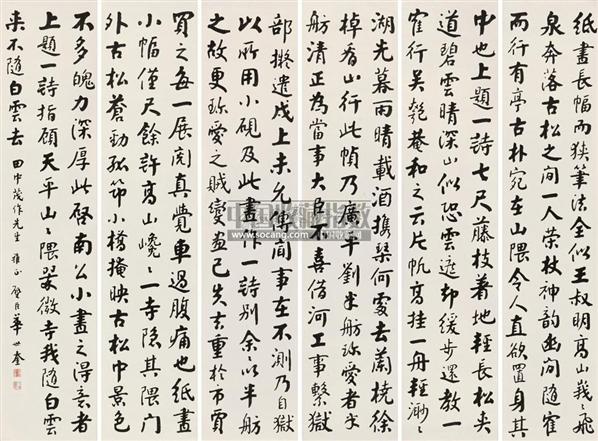 紙畫長幅而狹筆法全似王叔明高山峩〻飛
泉奔落古松之間一人榮杖神韵幽閒隨寉
而行有亭古朴宛在山隈令人直欲置身其
中也上題一詩七尺藤枝著地輕長松夾
道碧雲晴深山似恐雲遮却緩步還教一
寉行吴匏菴和之云片帆高挂一舟輕渺〻
湖光暮雨晴載酒携琹何處去蘭橈徐
棹看山行此幀乃廣平劉半舫珍愛者半
舫清正為當事大臣不喜借河工事繫獄
部擬遣戍上未允傳聞事在不測乃自獄
以所用小硯及此畫作一詩別余余以半舫
之故更珍愛之賊變畫已失去重於市賈
買之每一展閱真覺車過腹痛也紙畫
小幅僅尺餘許高山巉〻一寺隱其隈門
外古松蒼勁孤節小橋掩映古松巾景色
不多魄力深厚此啓南公小畫之得意者
上題一詩指顧天平山〻隈翠微寺我隨白雲
来不隨白雲去 田中茂作先生 雅正 璧臣華世奎
中国收藏指数
www.socang.com